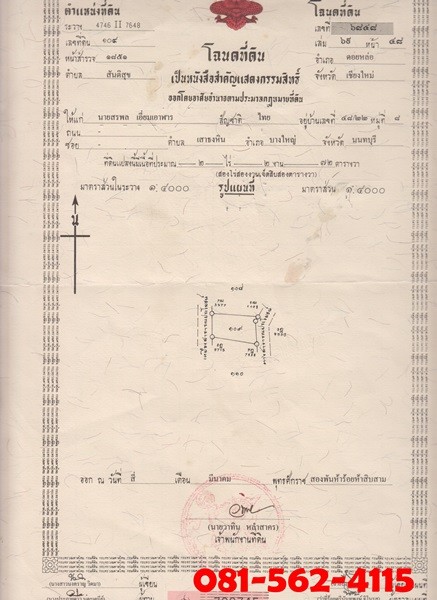 ตำแหน่งที่ดิน
ระวาง 4746 II 7648
เลขที่ดิน ๑๐๙
หน้าสำรวจ ๑๘๕๑
ตำบล สันติสุข
โฉนดที่ดิน
เลขที่ ๖๘๔๘
เล่ม ๖๙ หน้า ๔๘
อำเภอ ดอยหล่อ
จังหวัด เชียงใหม่
โฉนดที่ดิน
เป็นหนังสือสำคัญแสดงกรรมสิทธิ์
ออกโดยอาศัยอำนาจตามประมวลกฎหมายที่ดิน
ให้แก่ นายสรพล เอี่ยมเอาฬาร สัญชาติ ไทย อยู่บ้านเลขที่ ๔๘/๒๒ หมู่ที่ ๘
ถนน
ซอย ตำบล เสาธงหิน อำเภอ บางใหญ่ จังหวัด นนทบุรี
ที่ดินแปลงนี้มีเนื้อที่ประมาณ ๒ ไร่ ๒ งาน ๗๒ ตารางวา
(สองไร่สองงานเจ็ดสิบสองตารางวา)
มาตราส่วนในระวาง ๑:๔๐๐๐ รูปแผนที่ มาตราส่วน ๑:๔๐๐๐
๑๐๘
๑๐๙
๑๑๐
ออก ณ วันที่ สี่ เดือน มีนาคม พุทธศักราช สองพันห้าร้อยห้าสิบสาม
เจ้าพนักงานที่ดิน
ผู้เขียน
081-562-4115